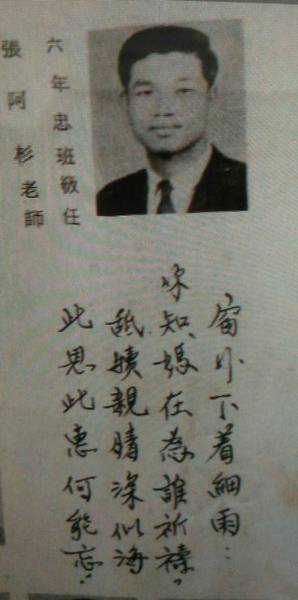 六年忠班敬任
張阿杉老師
窗外下着細雨：
你知、媽在為誰祈禱？
舐犢親情深似海
此恩此惠何能忘！